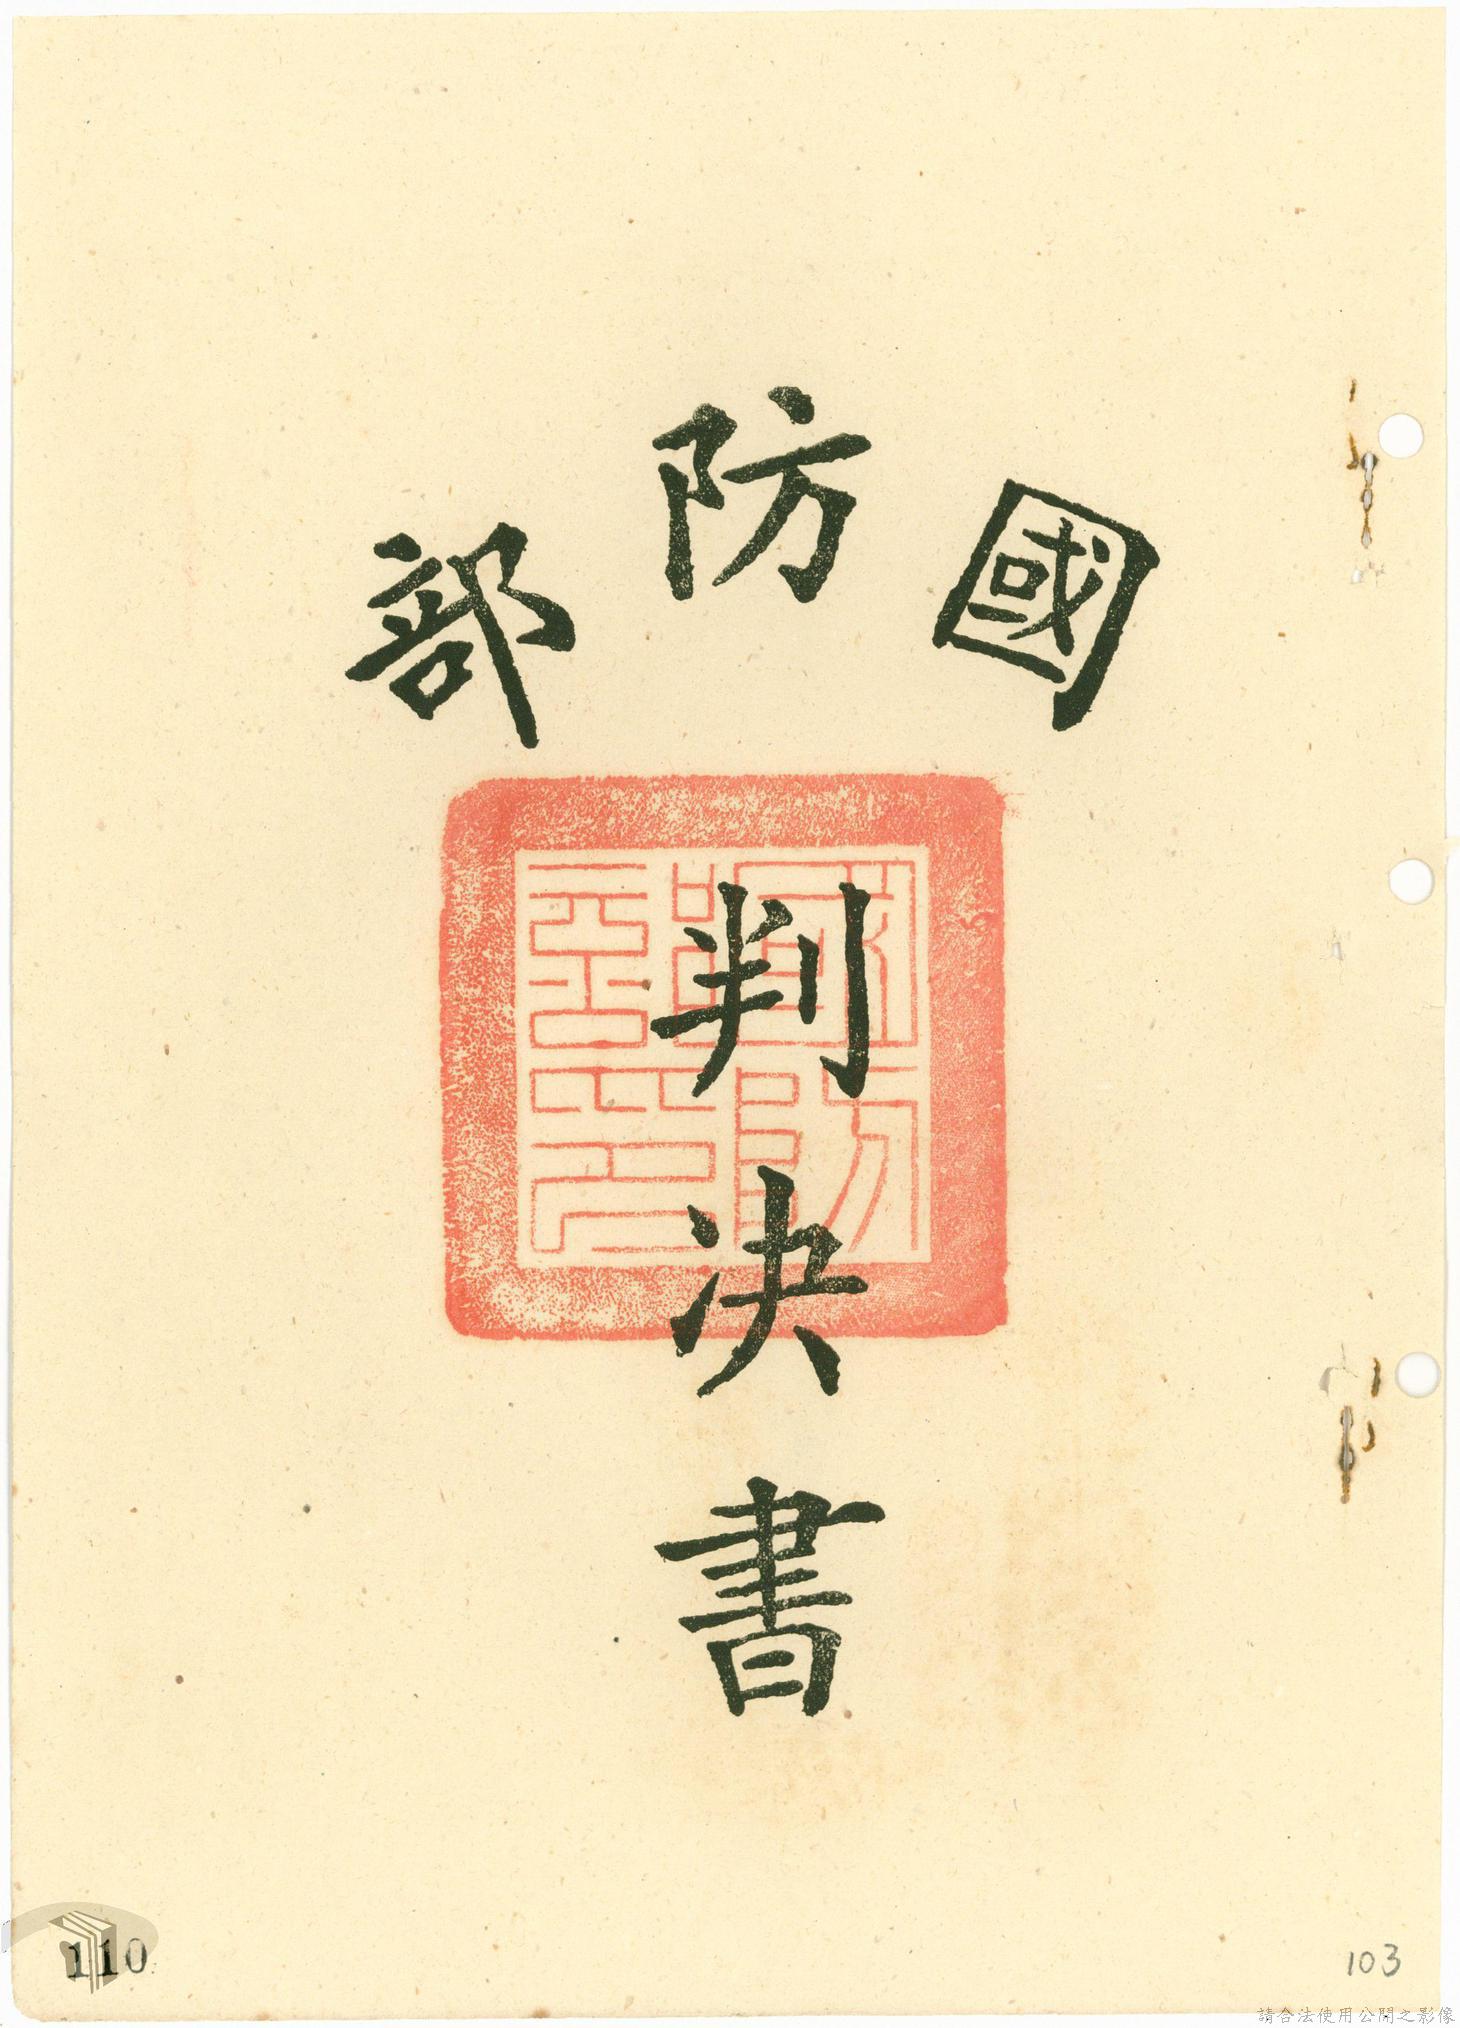 國防部
判決書
110
103
請合法使用公開之影像